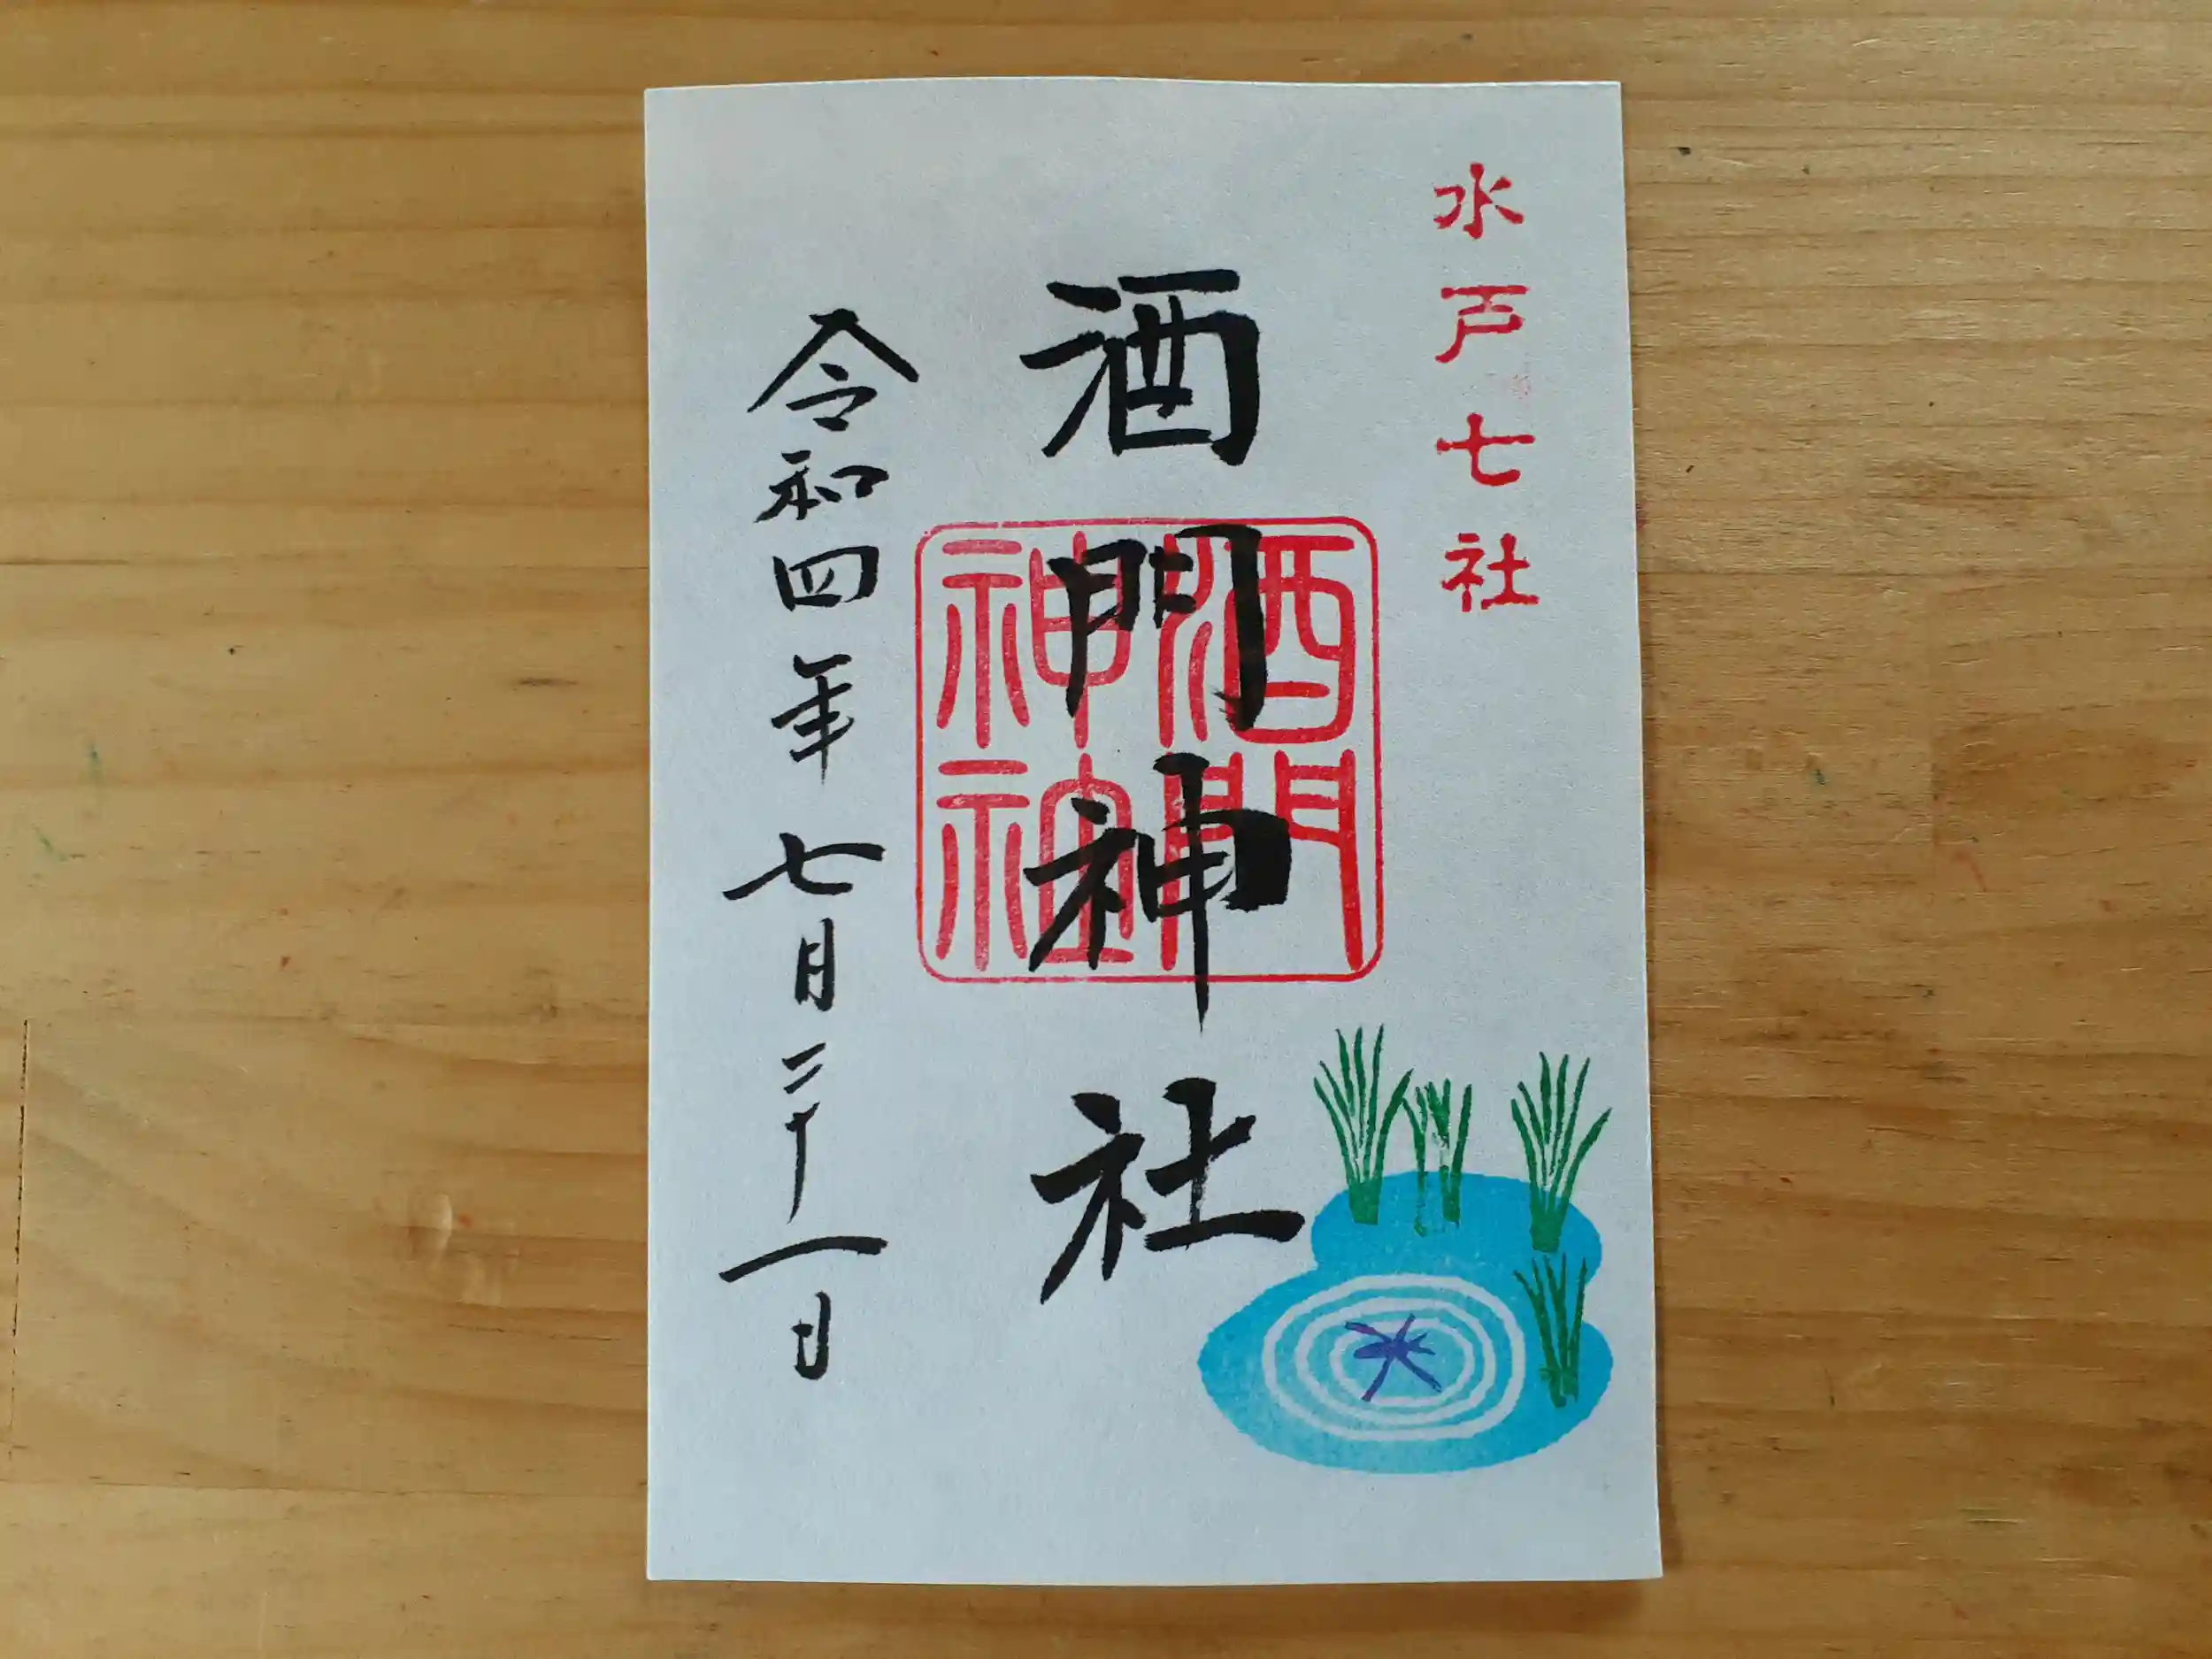 水戸七社
酒門神社
酒門
神社
令和四年七月二十一日